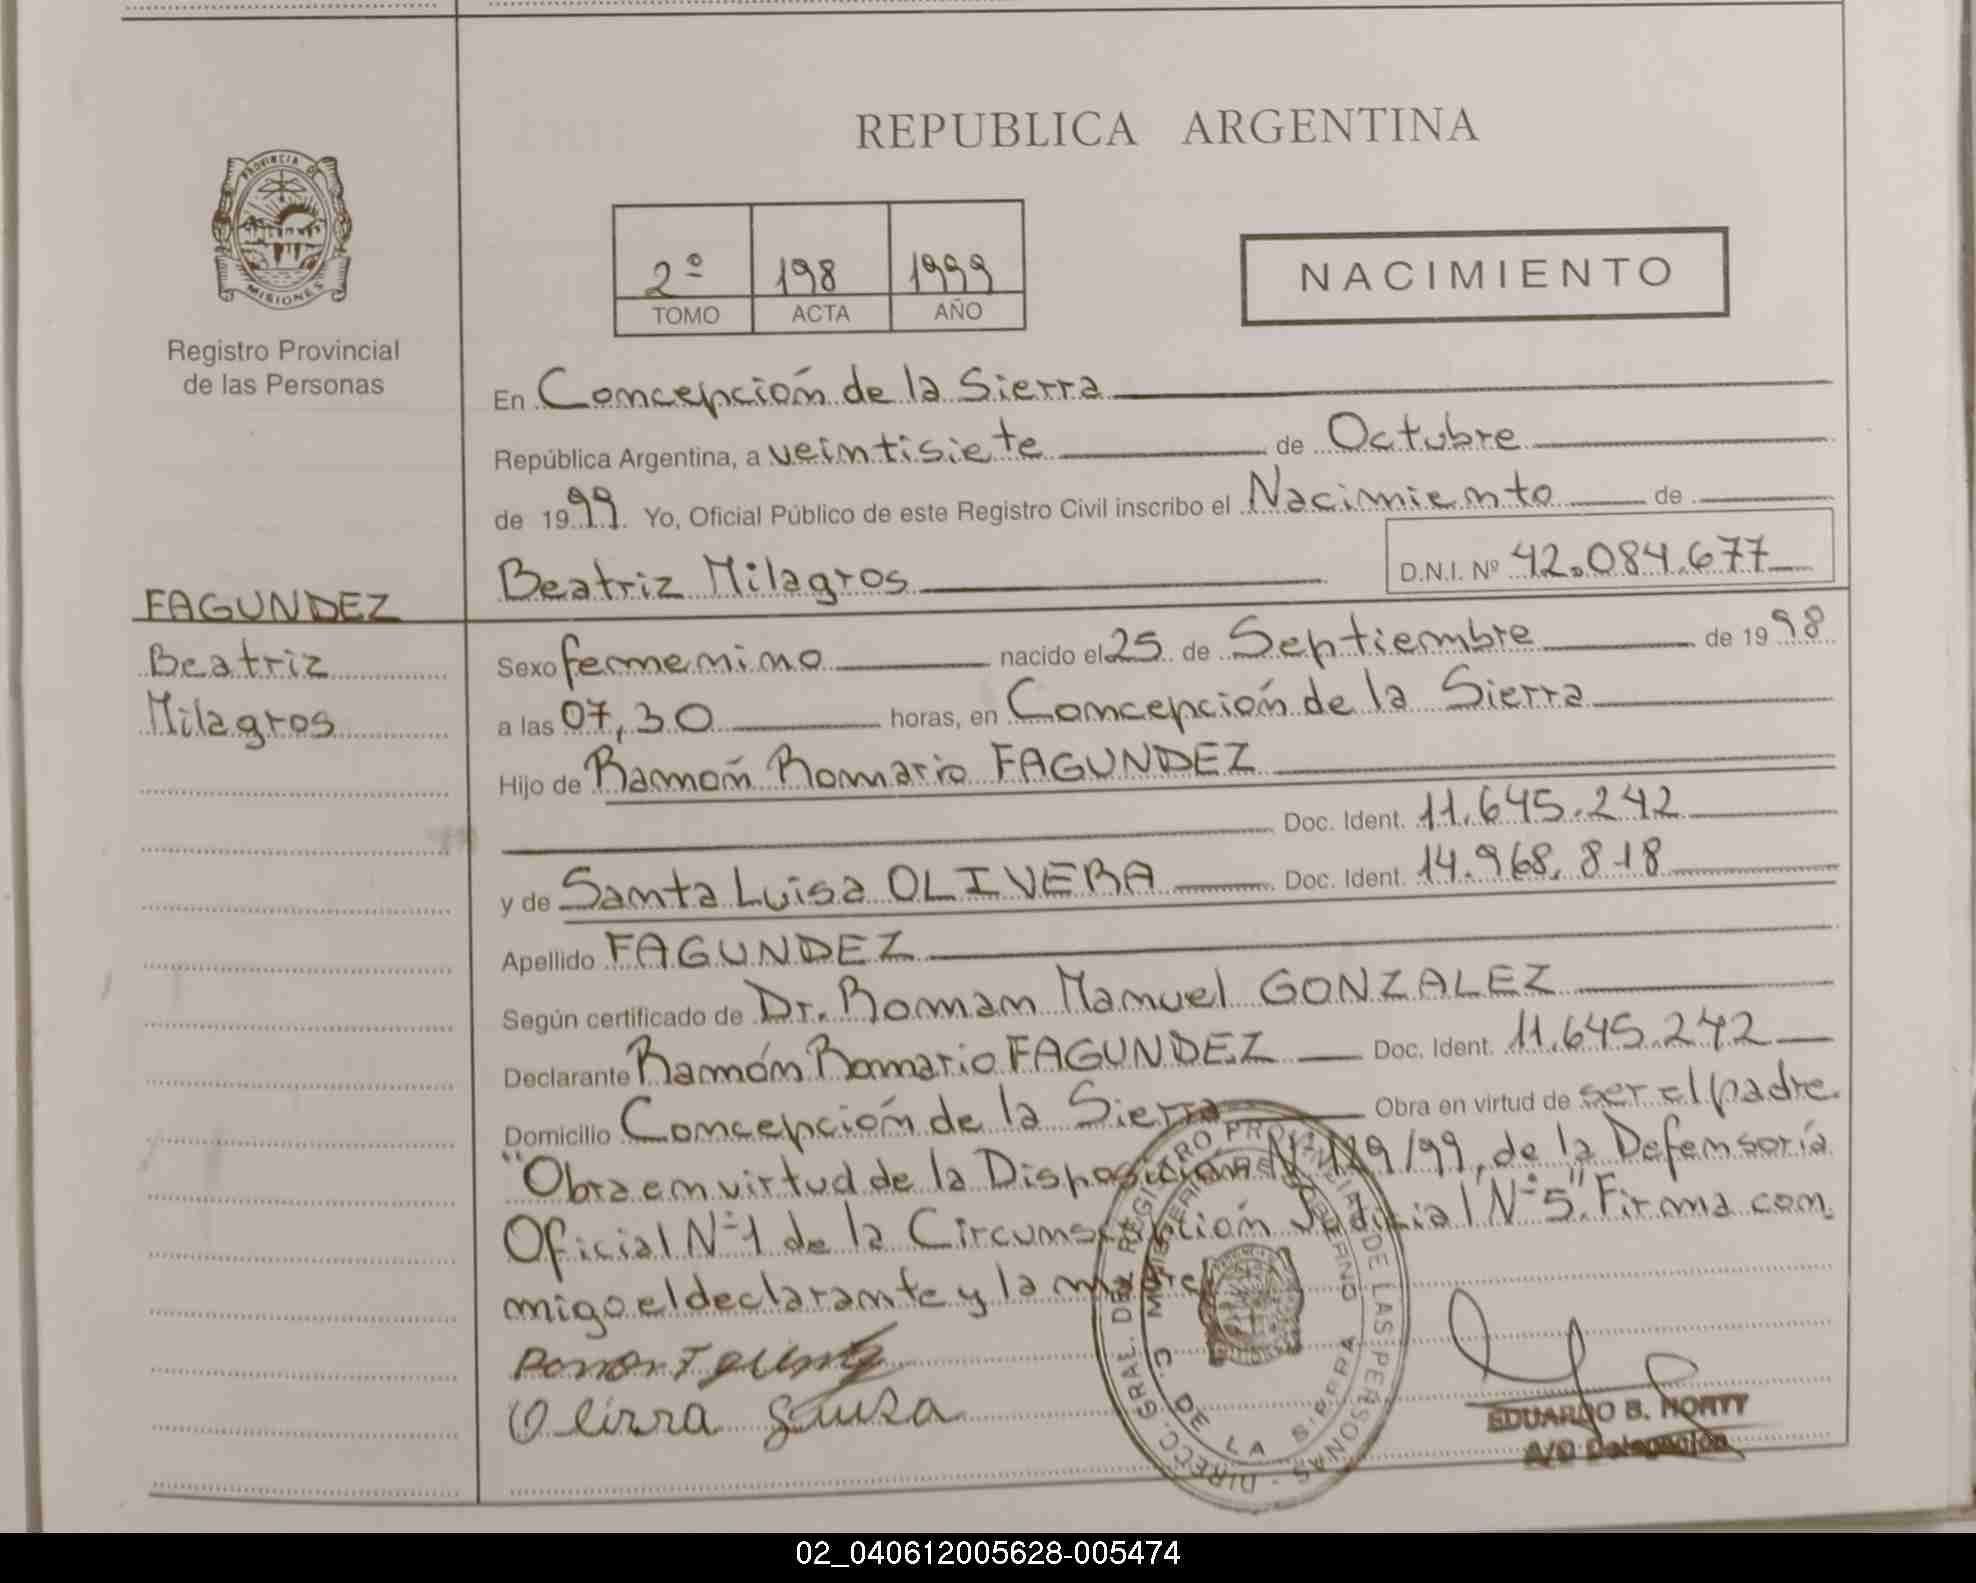 REPUBLICA ARGENTINA
PROVINCIA DE
MISIONES
Registro Provincial
de las Personas
2º 198 1999
TOMO ACTA AÑO
NACIMIENTO
En Concepción de la Sierra
República Argentina, a veintisiete de Octubre
de 1999. Yo, Oficial Público de este Registro Civil inscribo el Nacimiento de
Beatriz Milagros D.N.I. Nº 42.084.677
FAGUNDEZ
Beatriz
Milagros
Sexo femenino nacido el 25 de Septiembre de 1998
a las 07,30 horas, en Concepción de la Sierra
Hijo de Ramón Romario FAGUNDEZ
Doc. Ident. 11.645.242
y de Santa Luisa OLIVERA Doc. Ident. 14.968.818
Apellido FAGUNDEZ
Según certificado de Dr. Roman Manuel GONZALEZ
Declarante Ramón Romario FAGUNDEZ Doc. Ident. 11.645.242
Domicilio Concepción de la Sierra Obra en virtud de ser el padre.
"Obra en virtud de la Disposición Nº 119/99, de la Defensoría
Oficial Nº1 de la Circunscriptión Judicial Nº5". Firma con
migo el declarante y la madre
Olivra
DIRECC. GRAL. DEL REGISTRO PROVINCIAL DE LAS PERSONAS -
MINISTERIO DE GOBIERNO
C. DE LA SIERRA
EDUARDO B. NORTY
A/C Delegación
02_040612005628-005474